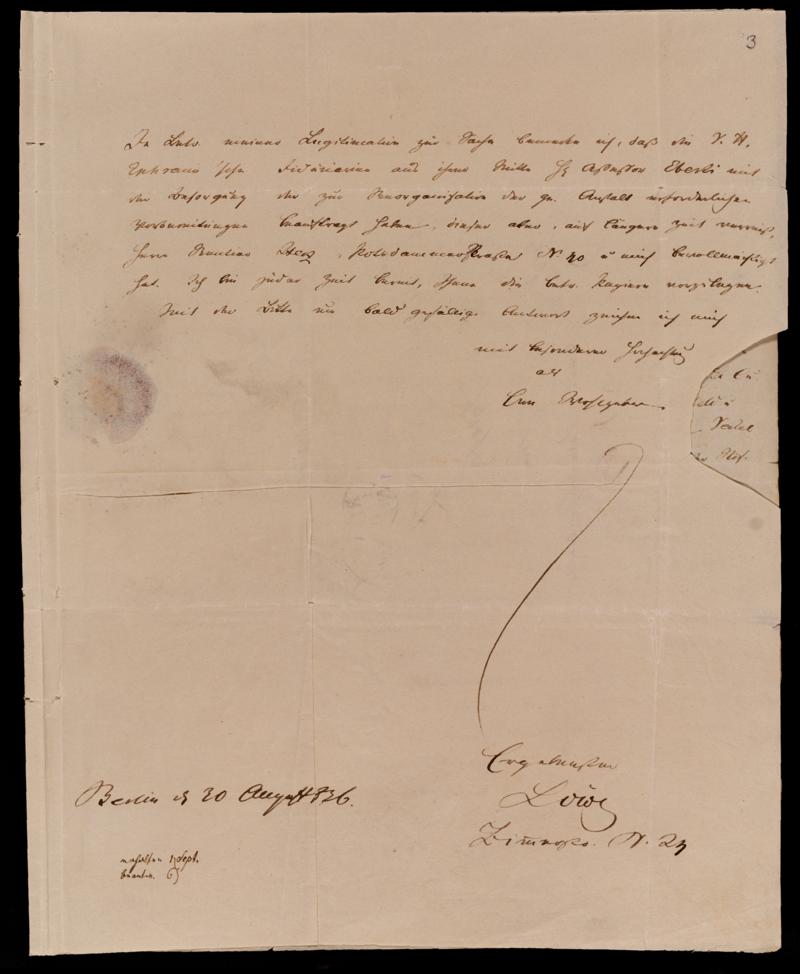 3
In Betr. meiner Legitimation zur Sache bemerke ich, daß die V. H.
Ephraim'sche Fiduciarien aus ihrer Mitte H Assessor Eberti mit
der Besorgung der zur Reorganisation der gn. Anstalt erforderlichen
Vorbereitungen beauftragt haben, dieser aber, auf längere Zeit verreist,
Herrn Rentier Herz, Potsdammerstraße N u mich bevollmächtigt
hat. Ich bin jeder Zeit bereit, Ihnen die betr. Papiere vorzulegen.
Mit der Bitte um bald gefällige Antwort zeichne ich mich
mit besonderer Hochachtung
als
Euer Wohlgeboren
Ergebenster
Berlin d 30 August 836.
Löwe
Zimmerstr. N.
erhalten Sept.
beantw.